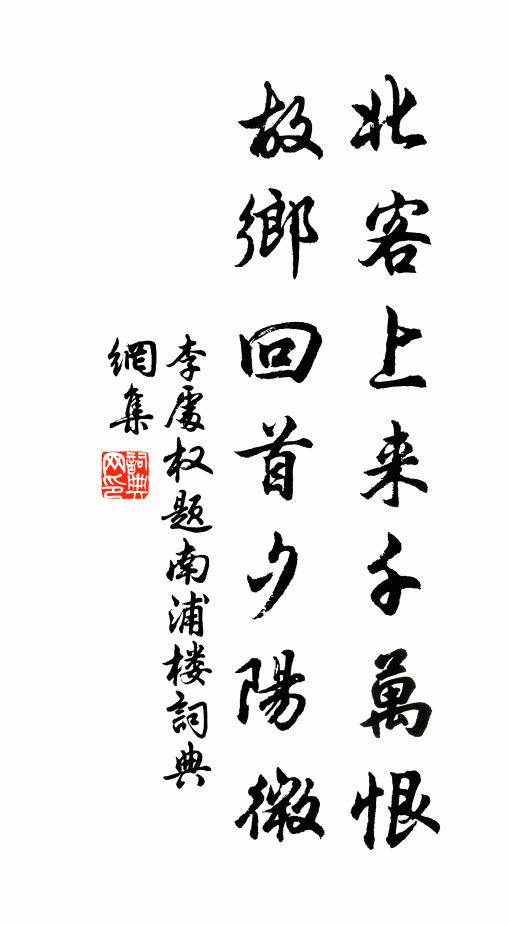 北客上来千萬恨
故鄉回首夕陽微
李處权题南浦楼詞典
網集
詞典网印